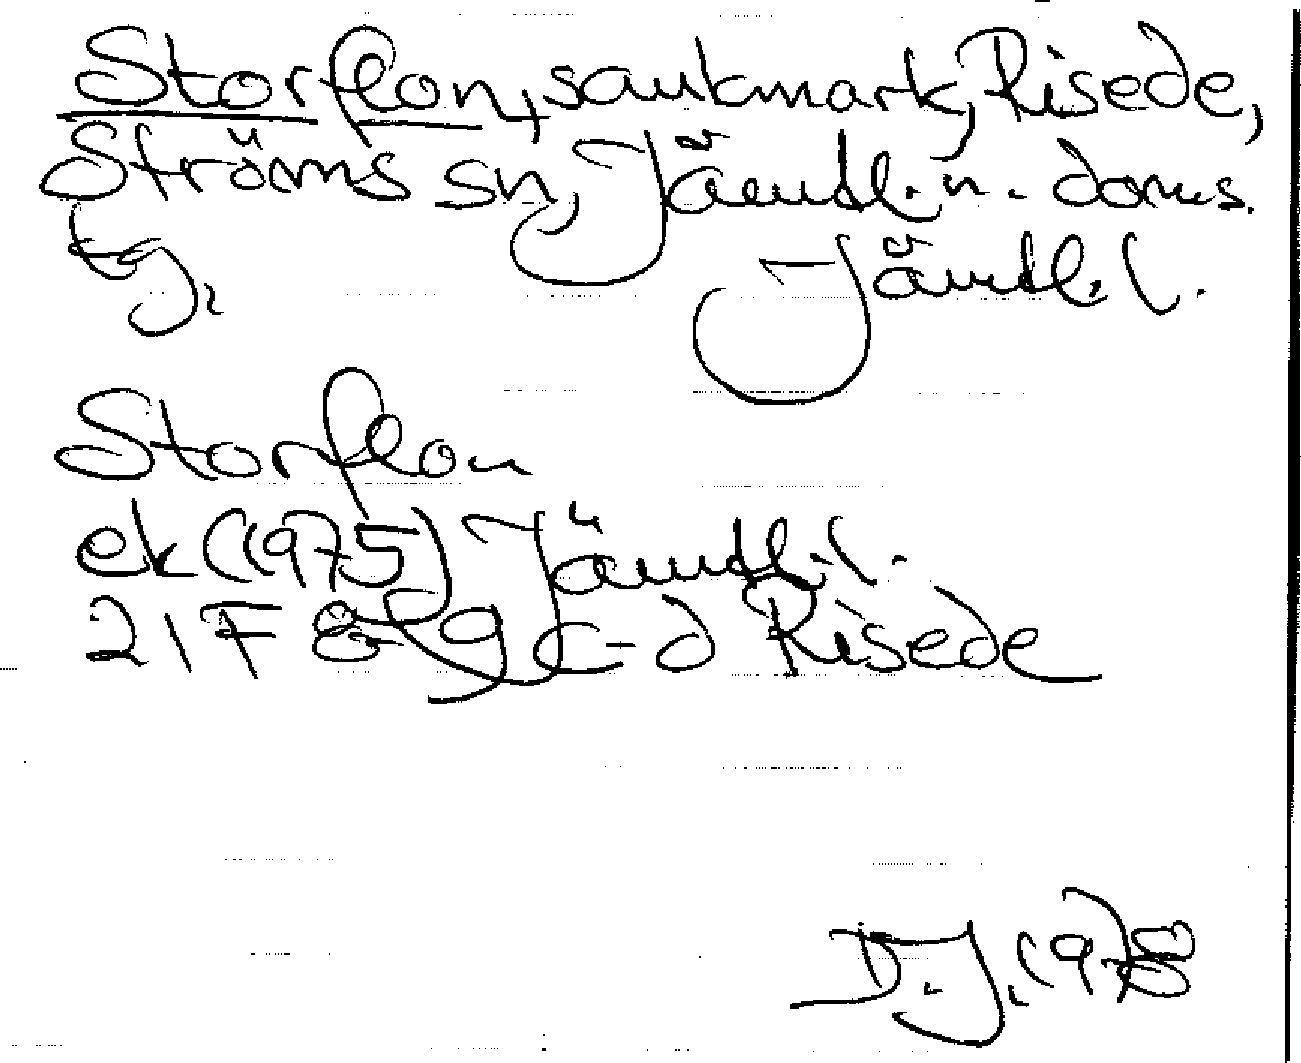 Storflon, sankmark, Risede,
Ströms sn, Jämtl. n. doms.
tg,
Jämtl. l.
Storflon
ek (1975) Jämtl. l.
21F 8-9 c-d Risede
D.J. 1978